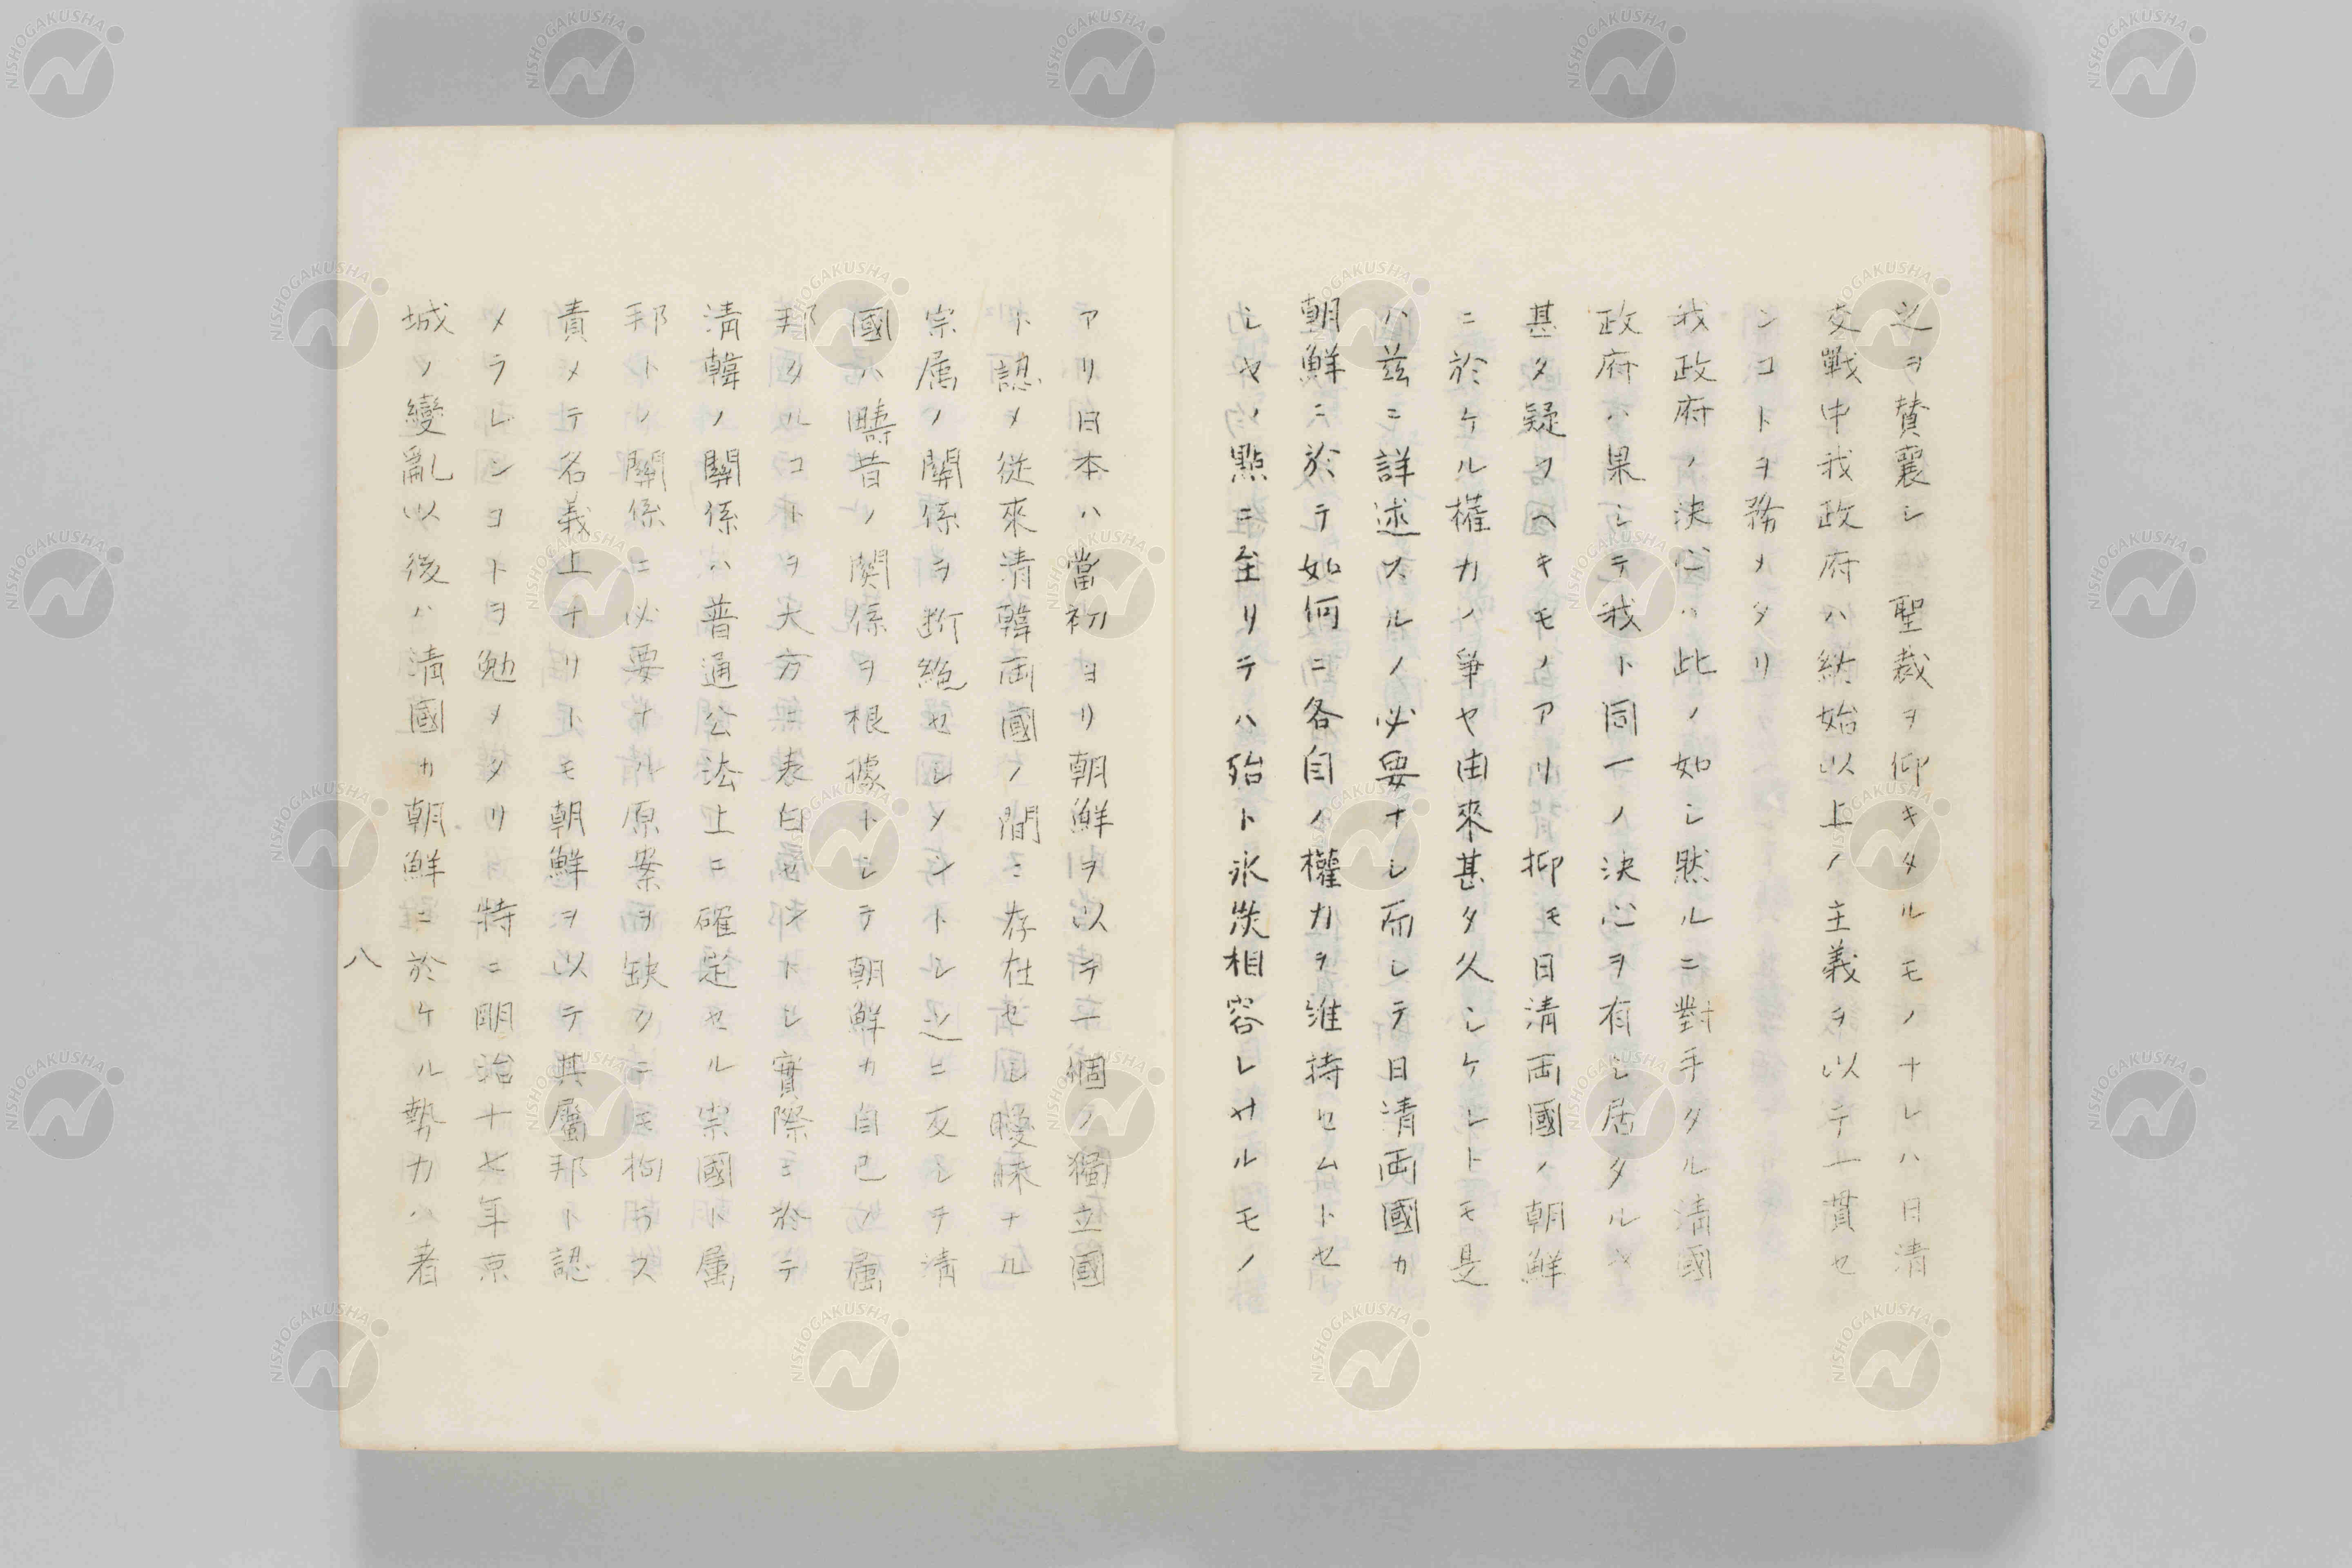 之ヲ賛襄シ 聖裁ヲ仰キタルモノナレハ日清
交戰中我政府ハ終始以上ノ主義ヲ以テ一貫セ
ンコトヲ務メタリ
我政府ノ決心ハ此ノ如シ然ルニ對手タル清國
政府ハ果シテ我ト同一ノ決心ヲ有シ居タルヤ
甚タ疑フヘキモノアリ抑モ日清両國ノ朝鮮
ニ於ケル權力ノ爭ヤ由來甚タ久シケレトモ是
ハ茲ニ詳述スルノ必要ナシ而シテ日清両國カ
朝鮮ニ於テ如何ニ各自ノ權力ヲ維持セムトセ
シヤノ點ニ至リテハ殆ト氷炭相容レサルモノ
アリ日本ハ當初ヨリ朝鮮ヲ以テ一個ノ獨立國
ト認メ從來清韓両國ノ間ニ存在セシ曖昧ナル
宗属ノ關係ヲ斷絶セシメントシ之ニ反シテ清
國ハ疇昔ノ関係ヲ根據トシテ朝鮮カ自己ノ属
邦タルコトヲ大方ニ表白セントシ實際ニ於テ
清韓ノ關係ハ普通公法上ニ確定セル宗國ト属
邦トノ關係ニ必要ナル原案ヲ缺クニモ拘ラス
責メテ名義上ナリトモ朝鮮ヲ以テ其屬邦ト認
メラレンコトヲ勉メタリ特ニ明治十七年京
城ノ變亂以後ハ清國カ朝鮮ニ於ケル勢力ハ著
八
NISHOGAKUSHA